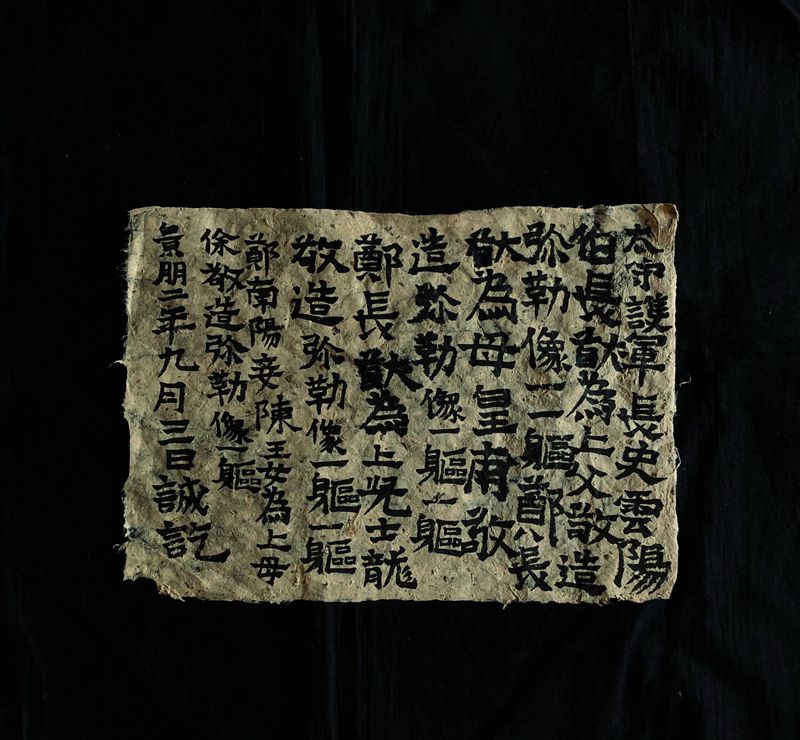 太守護軍長史雲陽
伯長猷為亡父敬造
弥勒像一一軀鄭八長
猷為母皇甫敬
造弥勒像一軀一軀
鄭長猷為亡児士龍
敬造弥勒像一軀一軀
鄭南陽妾陳王女為亡母
徐敬造弥勒像一軀
景明二年九月三日誠訖